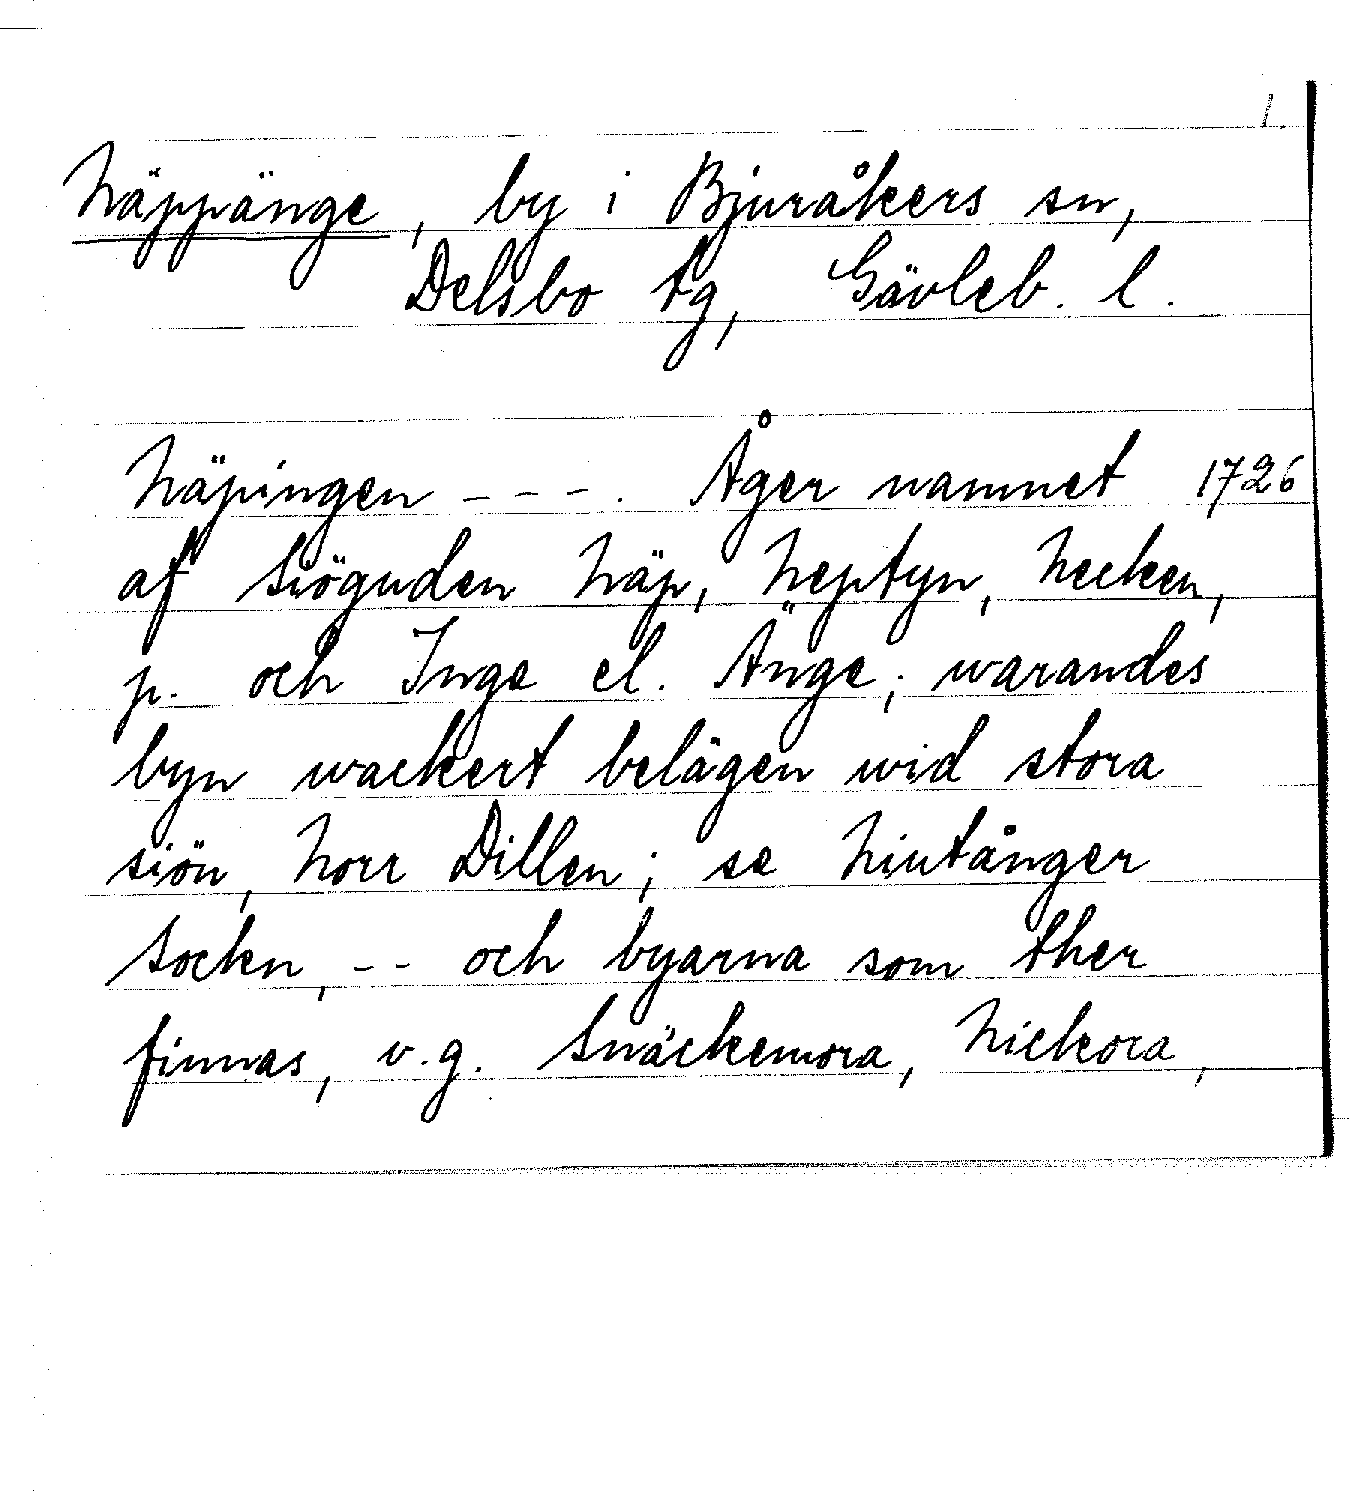 1.
Näppänge, by i Bjuråkers sn,
Delsbo tg, Gävleb. l.
Näpingen ---. Åger namnet 1726
af Siöguden Näp, Neptyn, Necken,
p. och Inge el. Änge; warandes
byn wackert belägen wid stora
siön, Norr Dillen; se Niutånger
Sockn, -- och byarna som ther
finnas, v.g. Snäckemora, Nickora,